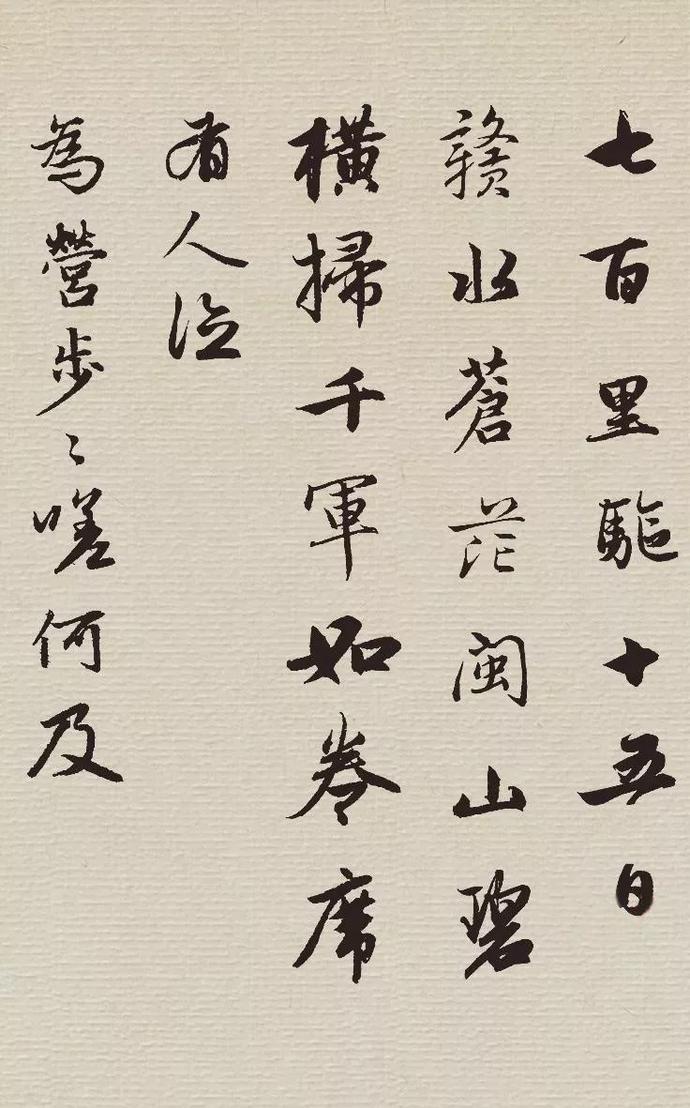 七百里驅十五日
贛水蒼茫閩山碧
橫掃千軍如卷席
有人泣
為營步〻嗟何及